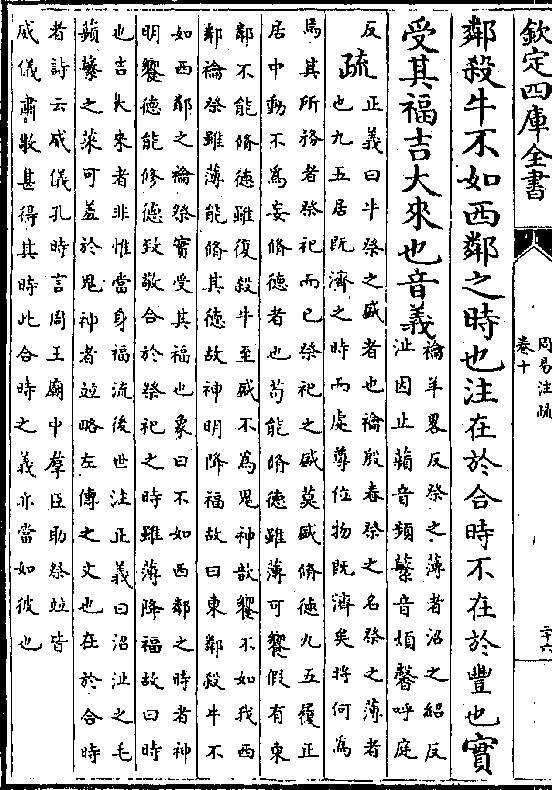 欽定四庫全書
周易注疏
卷十
二十六
鄰殺牛不如西鄰之時也注在於合時不在於豐也實
受其福吉大來也音義
禴羊畧反祭之薄者沼之紹反
沚因止蘋音頻蘩音煩馨呼庭
反
疏
正義曰牛祭之盛者也禴殷春祭之名祭之薄者
也九五居既濟之時而處尊位物既濟矣將何為
焉其所務者祭祀而已祭祀之盛莫盛脩德九五履正
居中動不為妄脩德者也苟能脩德雖薄可饗假有東
鄰不能脩德雖復殺牛至盛不為鬼神歆饗不如我西
鄰禴祭雖薄能脩其德故神明降福故曰東鄰殺牛不
如西鄰之禴祭實受其福也象曰不如西鄰之時者神
明饗德能修德致敬合於祭祀之時雖薄降福故曰時
也吉大來者非惟當身福流後世注正義曰沼沚之毛
蘋蘩之菜可羞於鬼神者並略左傳之文也在於合時
者詩云威儀孔時言周王廟中羣臣助祭並皆
威儀肅敬甚得其時此合時之義亦當如彼也